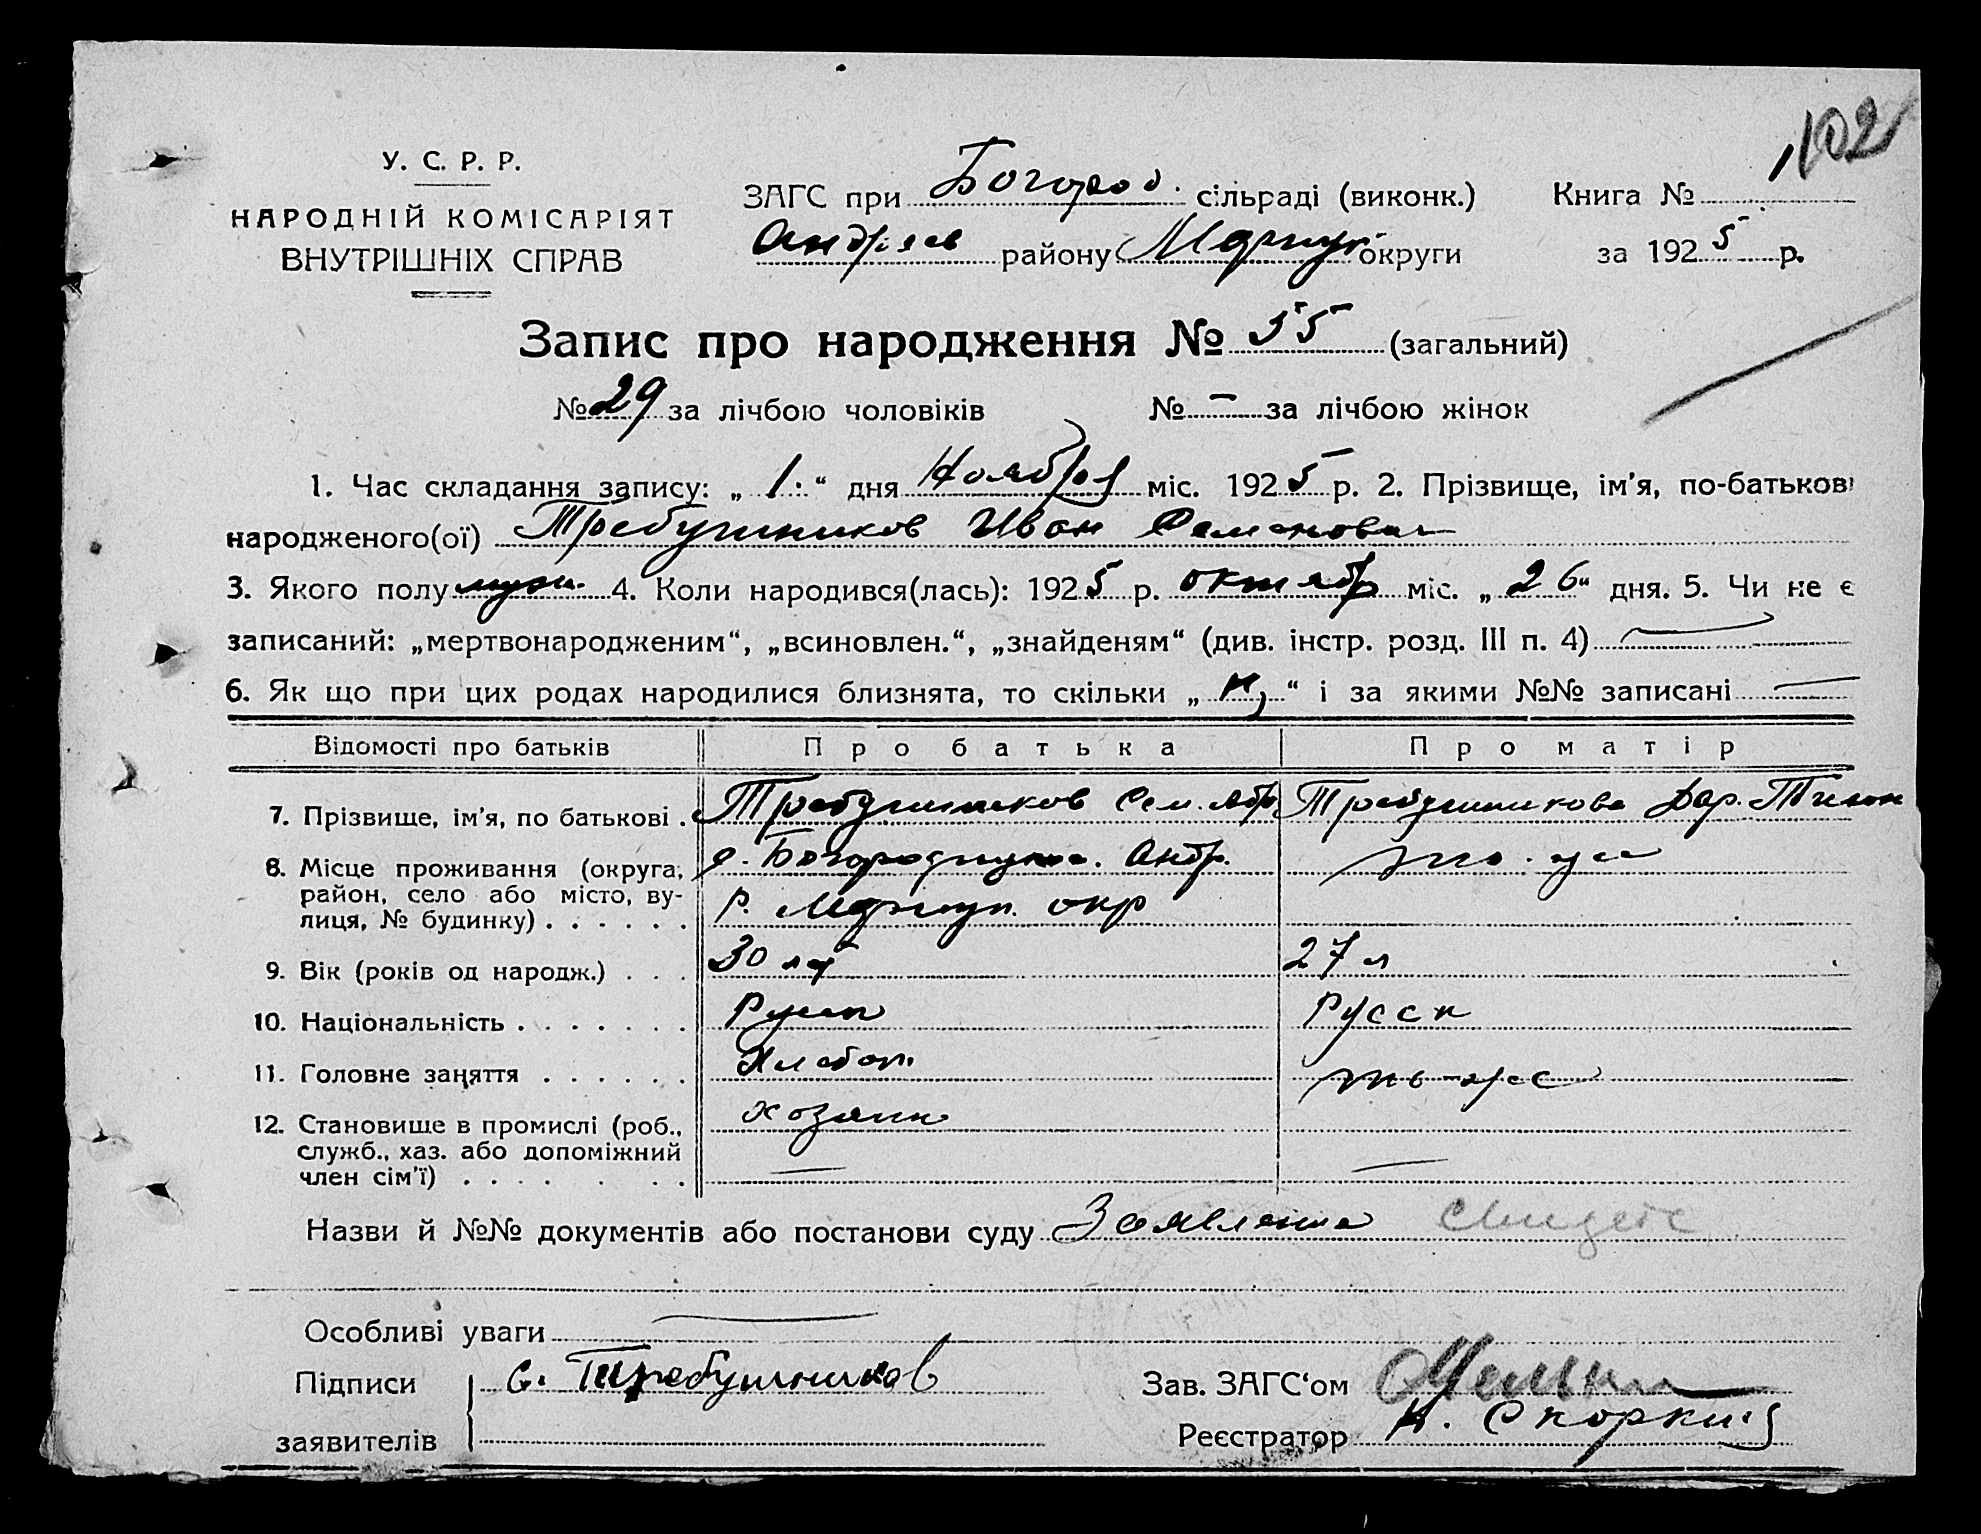 102
У. С. Р. Р.
НАРОДНІЙ КОМІСАРІЯТ
ВНУТРІШНІХ СПРАВ
ЗАГС при Богород. сільраді (виконк.) Книга №
Андріев району Мариуп округи за 1925 р.
Запис про народження № 55 (загальний)
№ 29 за лічбою чоловіків № – за лічбою жінок
1. Час складання запису: „1.“ дня Ноября міс. 1925 р. 2. Прізвище, ім'я, по-батькові
народженого(ої) Требушников Иван Семенович
3. Якого полу муж. 4. Коли народився(лась): 1925 р. октябр міс. „26“ дня. 5. Чи не є
записаний: „мертвонародженим“, „всиновлен.“, „знайденям“ (див. інстр. розд. III п. 4) —
6. Як що при цих родах народилися близнята, то скільки „ “ і за якими №№ записані —
Відомості про батьків Про батька Про матір
7. Прізвище, ім'я, по батькові . Требушников Сем. Требушникова Дар. Тихон
8. Місце проживання (округа, район, село або місто, вулиця, № будинку) . . . . . . с. Богородицкое. Андр.
Р. Мариуп. окр
то-же
9. Вік (років од народж.) . . . 30 лет 27 л
10. Національність . . . . . . . Русск Русск
11. Головне заняття . . . . . . Хлебоп. то-же
12. Становище в промислі (роб., служб., хаз. або допоміжний член сім'ї) . . . . . . . хозяин
— —
Назви й №№ документів або постанови суду Заявление Свидет
Особливі уваги —
Підписи С. Требушников Зав. ЗАГС'ом
заявителів Реєстратор